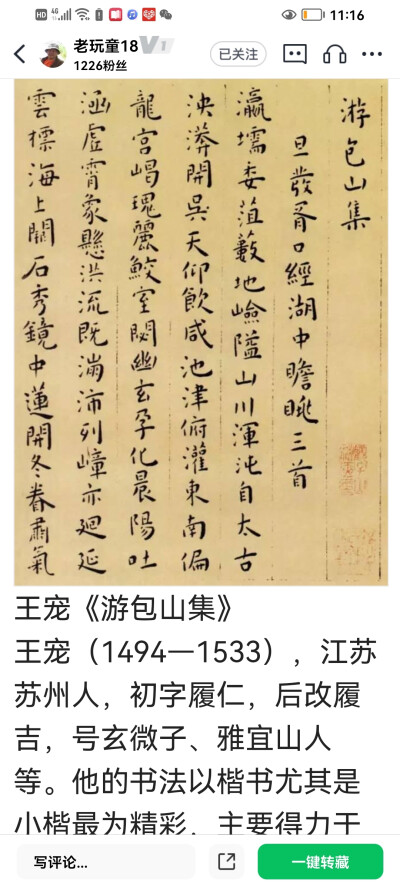 HD 4G 11:16
老玩童18 V1
1226粉丝
已关注
游包山集
旦发胥口經湖中瞻眺三首
瀛壖委菹藪地嶮隘山川渾沌自太古
泱漭開吳天仰飲咸池津俯灌東南偏
龍宮嵑瑰麗鮫室閟幽玄孕化晨陽吐
涵虛霄象懸洪流既滿沛列嶂亦迴延
雲標海上闕石秀鏡中蓮開冬眷肅氣
王宠《游包山集》
王宠（1494—1533），江苏
苏州人，初字履仁，后改履
吉，号玄微子、雅宜山人
等。他的书法以楷书尤其是
小楷最为精彩，主要得力于
写评论...
一键转藏